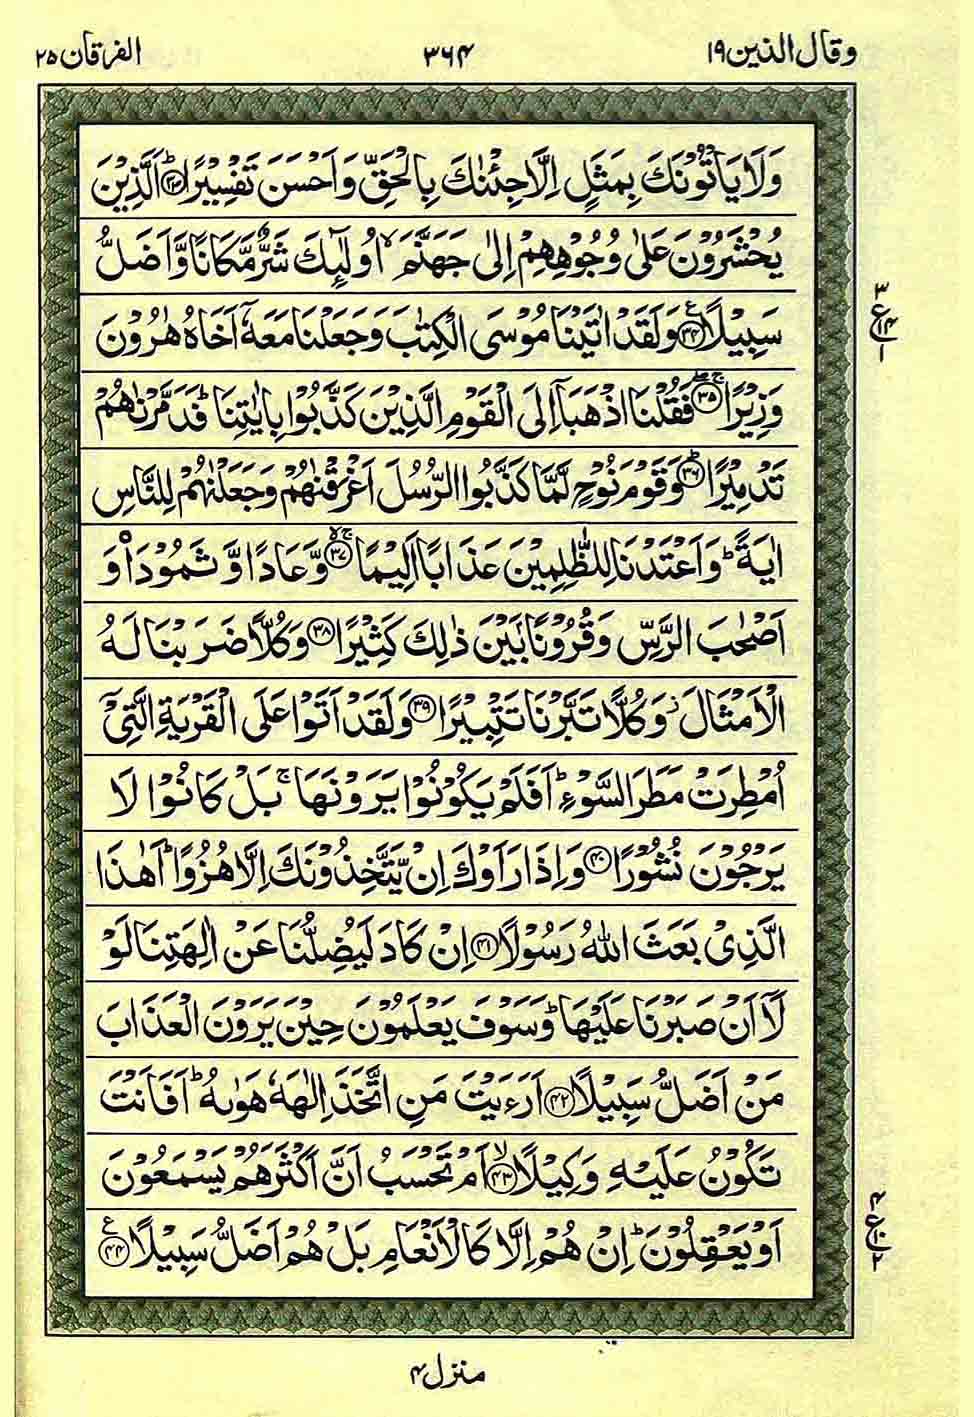 وقال الذين ١٩
٣٦٤
الفرقان ٢٥
وَلَا يَأْتُوْنَكَ بِمَثَلٍ اِلَّا جِئْنٰكَ بِالْحَقِّ وَاَحْسَنَ تَفْسِيْرًا ؕ﴿۳۳﴾ اَلَّذِيْنَ
يُحْشَرُوْنَ عَلٰى وُجُوْهِهِمْ اِلٰى جَهَنَّمَ ۙ اُولٰٓئِكَ شَرٌّ مَّكَانًا وَّاَضَلُّ
سَبِيْلًا ﴿۳۴﴾ۧ وَلَقَدْ اٰتَيْنَا مُوْسَى الْكِتٰبَ وَجَعَلْنَا مَعَهٗۤ اَخَاهُ هٰرُوْنَ
وَزِيْرًا ﴿۳۵﴾ۚۖ فَقُلْنَا اذْهَبَاۤ اِلَى الْقَوْمِ الَّذِيْنَ كَذَّبُوْا بِاٰيٰتِنَا ؕ فَدَمَّرْنٰهُمْ
تَدْمِيْرًا ؕ﴿۳۶﴾ وَقَوْمَ نُوْحٍ لَّمَّا كَذَّبُوا الرُّسُلَ اَغْرَقْنٰهُمْ وَجَعَلْنٰهُمْ لِلنَّاسِ
اٰيَةً ؕ وَاَعْتَدْنَا لِلظّٰلِمِيْنَ عَذَابًا اَلِيْمًا ﴿۳۷﴾ۚۙ وَّعَادًا وَّثَمُوْدَا۟ وَ
اَصْحٰبَ الرَّسِّ وَقُرُوْنًۢا بَيْنَ ذٰلِكَ كَثِيْرًا ﴿۳۸﴾ وَكُلًّا ضَرَبْنَا لَهُ
الْاَمْثَالَ ؗ وَكُلًّا تَبَّرْنَا تَتْبِيْرًا ﴿۳۹﴾ وَلَقَدْ اَتَوْا عَلَى الْقَرْيَةِ الَّتِيْۤ
اُمْطِرَتْ مَطَرَ السَّوْءِ ؕ اَفَلَمْ يَكُوْنُوْا يَرَوْنَهَا ۚ بَلْ كَانُوْا لَا
يَرْجُوْنَ نُشُوْرًا ﴿۴۰﴾ وَاِذَا رَاَوْكَ اِنْ يَّتَّخِذُوْنَكَ اِلَّا هُزُوًا ؕ اَهٰذَا
الَّذِيْ بَعَثَ اللّٰهُ رَسُوْلًا ﴿۴۱﴾ اِنْ كَادَ لَيُضِلُّنَا عَنْ اٰلِهَتِنَا لَوْ
لَاۤ اَنْ صَبَرْنَا عَلَيْهَا ؕ وَسَوْفَ يَعْلَمُوْنَ حِيْنَ يَرَوْنَ الْعَذَابَ
مَنْ اَضَلُّ سَبِيْلًا ﴿۴۲﴾ اَرَءَيْتَ مَنِ اتَّخَذَ اِلٰهَهٗ هَوٰىهُ ؕ اَفَاَنْتَ
تَكُوْنُ عَلَيْهِ وَكِيْلًا ۙ﴿۴۳﴾ اَمْ تَحْسَبُ اَنَّ اَكْثَرَهُمْ يَسْمَعُوْنَ
اَوْ يَعْقِلُوْنَ ؕ اِنْ هُمْ اِلَّا كَالْاَنْعَامِ بَلْ هُمْ اَضَلُّ سَبِيْلًا ﴿۴۴﴾ۧ
٣
ع١٤
١
٤
ع١٠
٢
منزل ٤